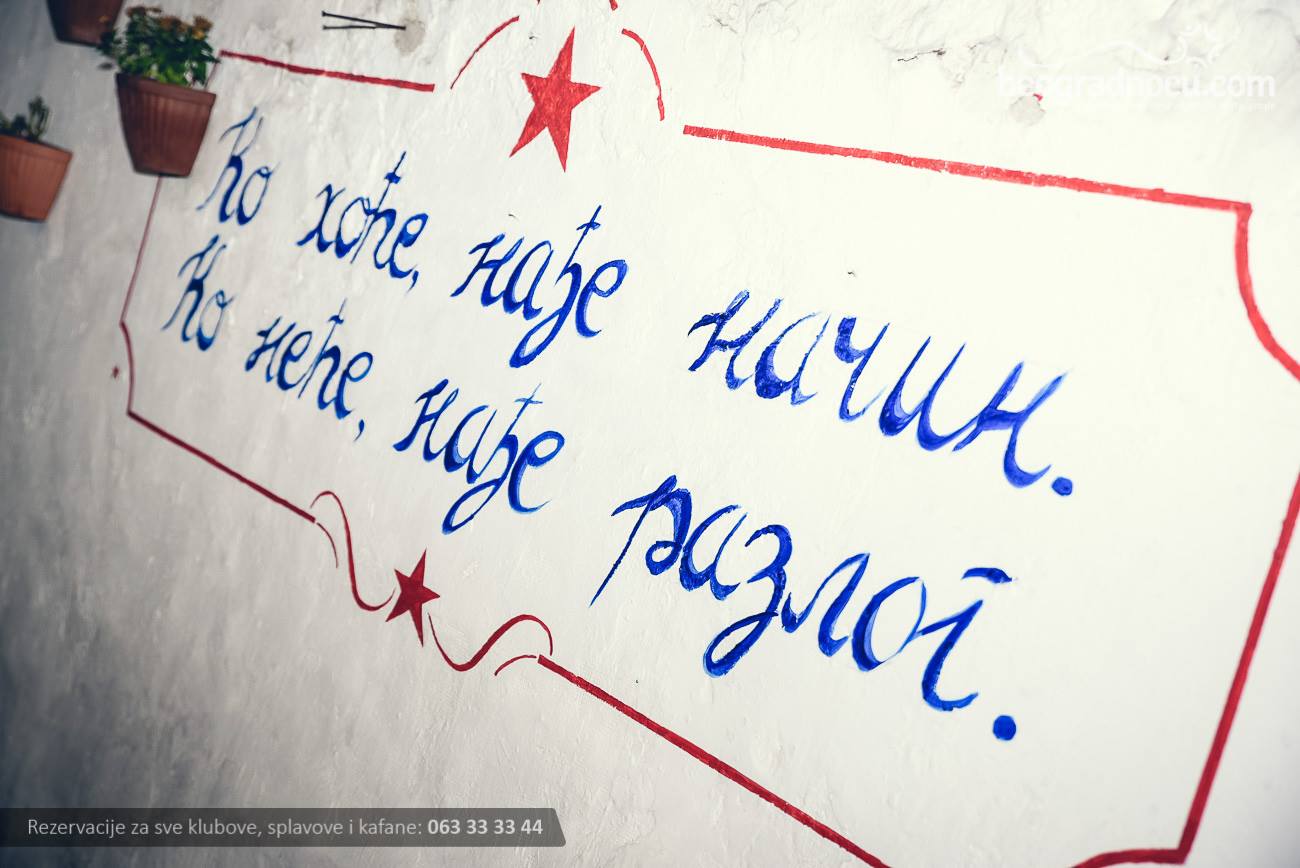 beogradnocu.com
Ко хоће, нађе начин.
Ко неће, нађе разлог.
Rezervacije za sve klubove, splavove i kafane: 063 33 33 44